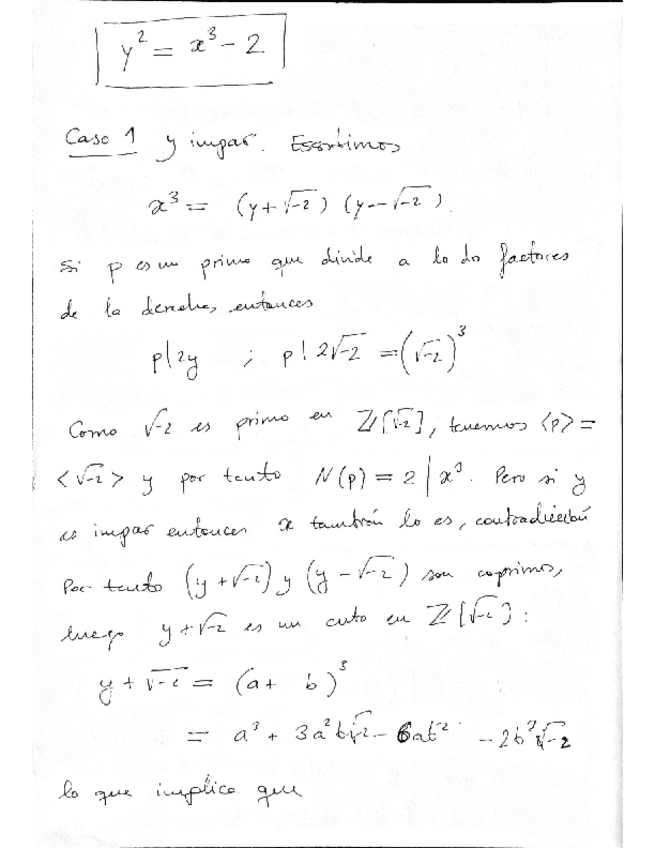 y² = x³ - 2
Caso 1 y impar. Escribimos
x³ = (y+√-2) (y-√-2).
Si p es un primo que divide a lo do factores
de la derecha, entonces
p|2y ; p|2√-2 = (√-2)³
Como √-2 es primo en ℤ[√-2], tenemos <p> =
<√-2> y por tanto N(p) = 2 | x³. Pero si y
es impar entonces x también lo es, contradicción
Por tanto (y+√-2) y (y-√-2) son coprimos,
luego y+√-2 es un cubo en ℤ[√-2]:
y + √-2 = (a+ b)³
= a³ + 3a²b√-2 - 6ab² - 2b³√-2
lo que implica que